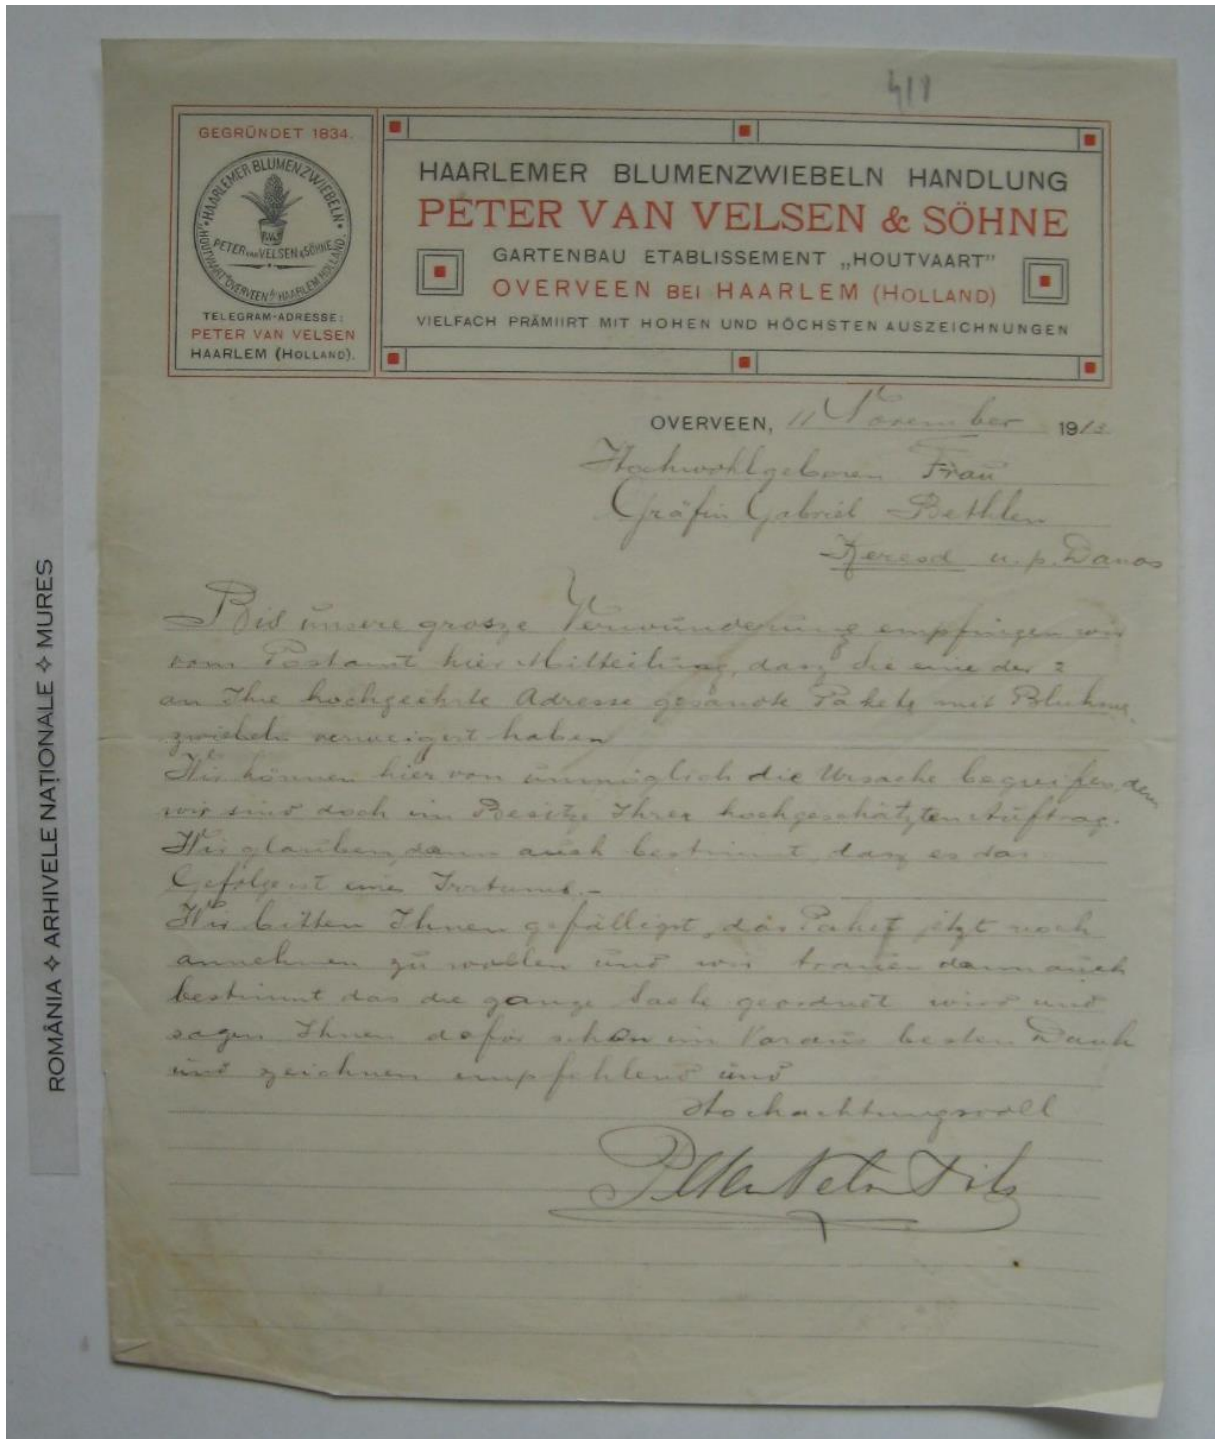 418
GEGRÜNDET 1834.
HAARLEMER BLUMENZWIEBELN
PETER VAN VELSEN & SÖHNE
"HOUTVAART" OVERVEEN b/ HAARLEM HOLLAND.
TELEGRAM-ADRESSE:
PETER VAN VELSEN
HAARLEM (HOLLAND).
HAARLEMER BLUMENZWIEBELN HANDLUNG
PETER VAN VELSEN & SÖHNE
GARTENBAU ETABLISSEMENT „HOUTVAART"
OVERVEEN BEI HAARLEM (HOLLAND)
VIELFACH PRÄMIIRT MIT HOHEN UND HÖCHSTEN AUSZEICHNUNGEN
OVERVEEN, 11 November 1913
Hochwohlgeboren Frau
Gräfin Gabriel Bethlen
Keresd u. p. Danos
Bis unsere grosze Verwunderung empfingen wir
vom Postamt hier Mitteilung, dasz Sie eine der 2
an Ihre hochgeehrte Adresse gesandte Pakete mit Bluhmen-
zwiebeln verweigert haben
Wir können hier von unmöglich die Ursache begreifen, denn
wir sind doch im Besitze Ihrer hochgeschätzten Auftrag.
Wir glauben dann auch bestimmt, dasz es das
Gefolge ist eines Irrtums.-
Wir bitten Ihnen gefälligst, das Paket jetzt noch
annehmen zu wollen und wir trauen dann auch
bestimmt das die ganze Sache geordnet wird und
sagen Ihnen dafür schon im Voraus besten Dank
und zeichnen empfehlend und
Hochachtungsvoll
ROMÂNIA ✧ ARHIVELE NAȚIONALE ✧ MURES